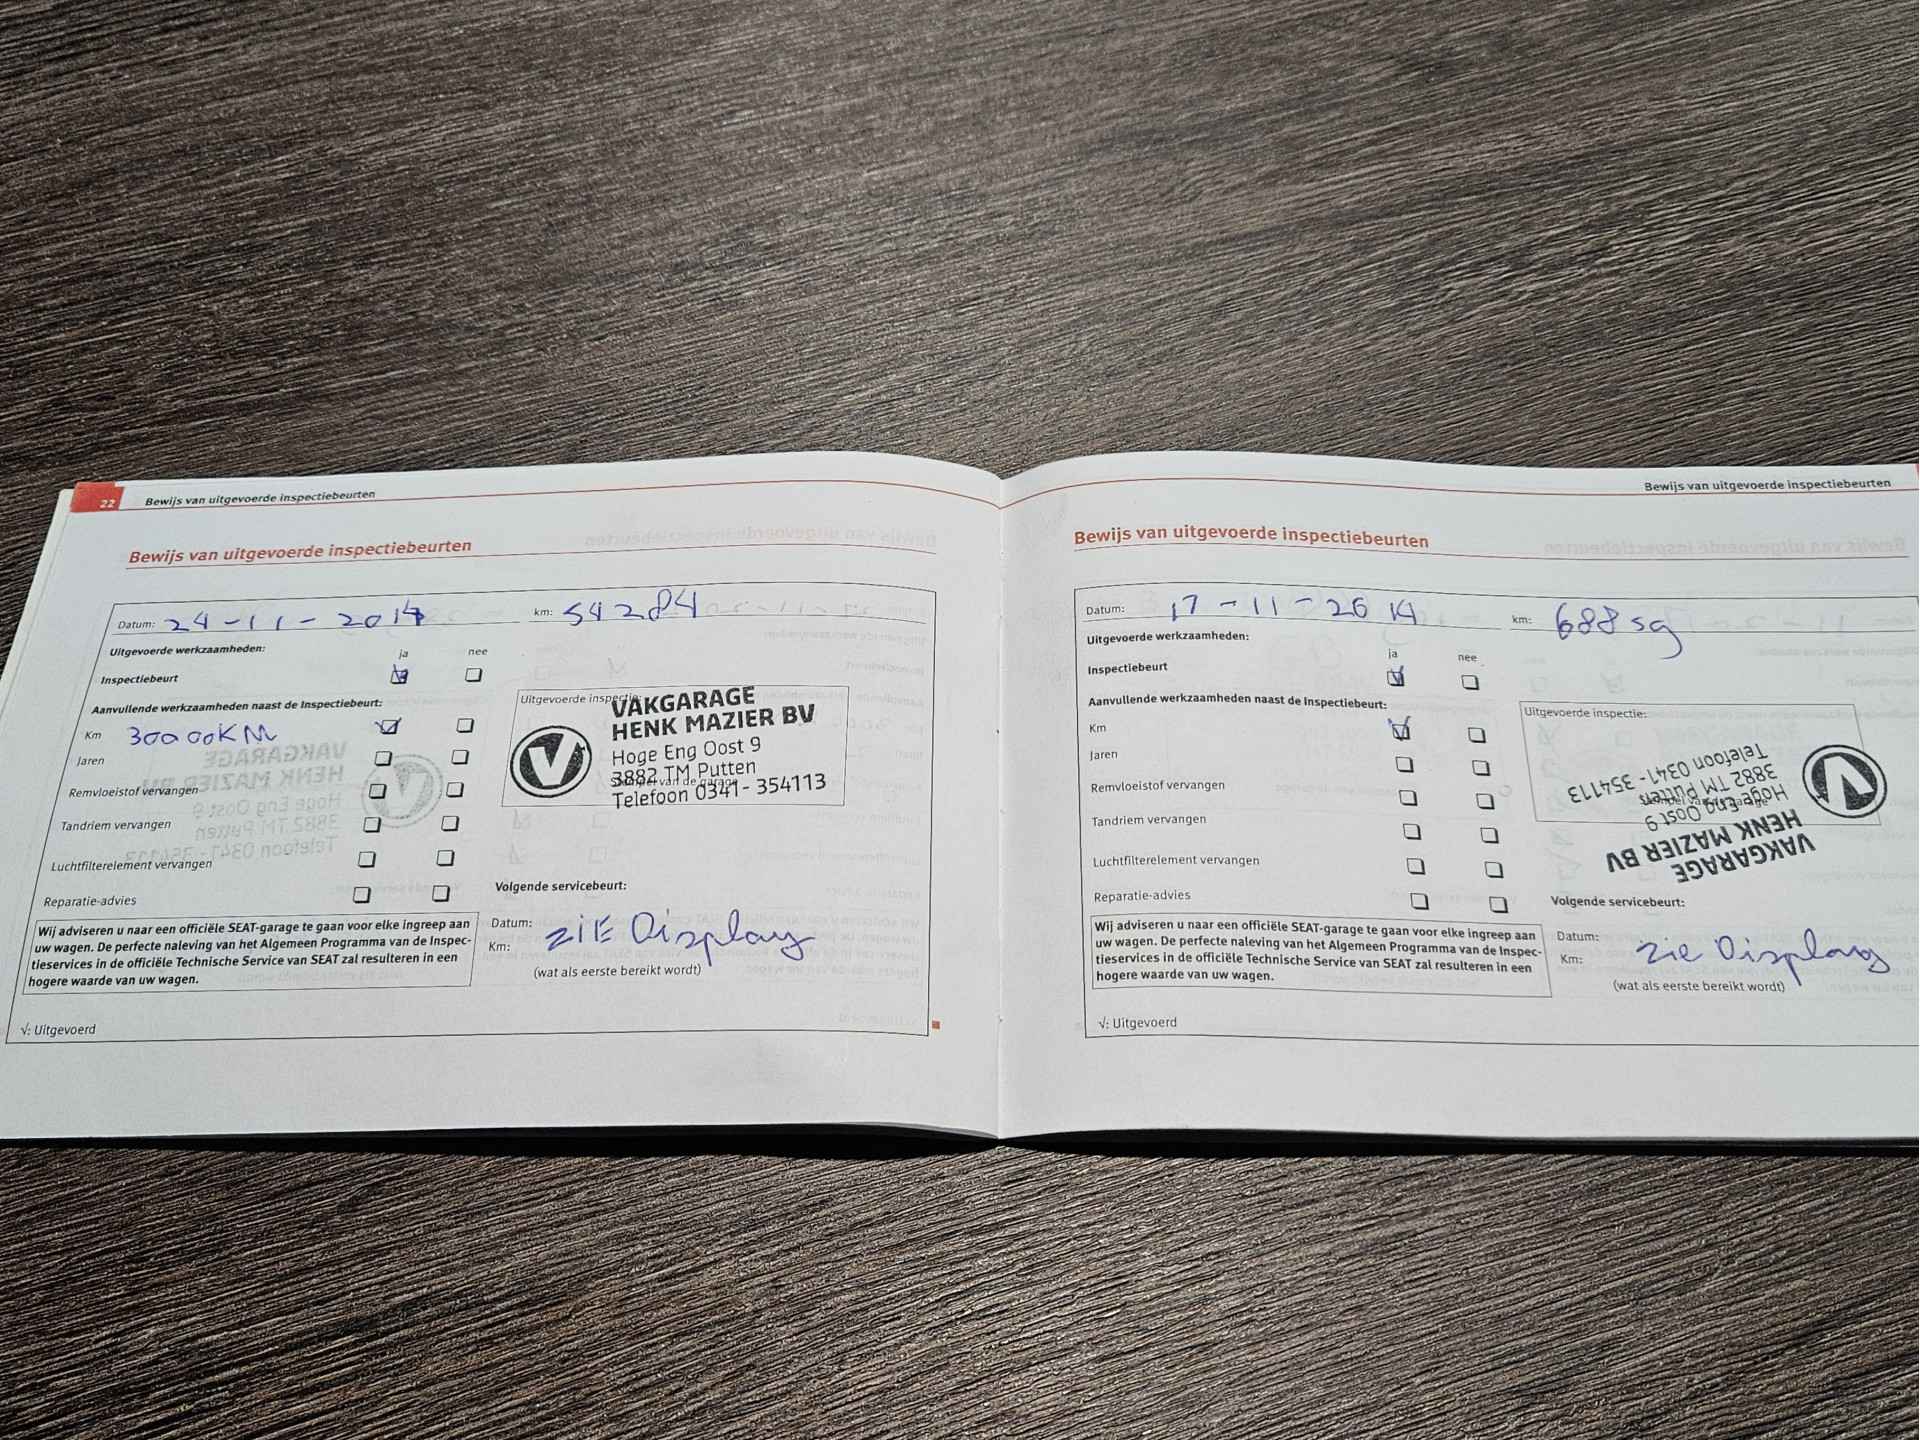 22 Bewijs van uitgevoerde inspectiebeurten
Bewijs van uitgevoerde inspectiebeurten
Datum: 24-11-2014 km: 54284
Uitgevoerde werkzaamheden:
ja nee
Inspectiebeurt
Aanvullende werkzaamheden naast de Inspectiebeurt:
Km 30000KM
Jaren
Remvloeistof vervangen
Tandriem vervangen
Luchtfilterelement vervangen
Reparatie-advies
Uitgevoerde inspectie:
VAKGARAGE
HENK MAZIER BV
Hoge Eng Oost 9
3882 TM Putten
Stempel van de garage
Telefoon 0341- 354113
Wij adviseren u naar een officiële SEAT-garage te gaan voor elke ingreep aan
uw wagen. De perfecte naleving van het Algemeen Programma van de Inspec-
tieservices in de officiële Technische Service van SEAT zal resulteren in een
hogere waarde van uw wagen.
Volgende servicebeurt:
Datum:
Km: ziE Display
(wat als eerste bereikt wordt)
√: Uitgevoerd
Bewijs van uitgevoerde inspectiebeurten
Bewijs van uitgevoerde inspectiebeurten
Datum: 17-11-2014 km: 68859
Uitgevoerde werkzaamheden:
ja nee
Inspectiebeurt
Aanvullende werkzaamheden naast de Inspectiebeurt:
Km
Jaren
Remvloeistof vervangen
Tandriem vervangen
Luchtfilterelement vervangen
Reparatie-advies
Uitgevoerde inspectie:
VAKGARAGE
HENK MAZIER BV
Hoge Eng Oost 9
3882 TM Putten
Telefoon 0341- 354113
Wij adviseren u naar een officiële SEAT-garage te gaan voor elke ingreep aan
uw wagen. De perfecte naleving van het Algemeen Programma van de Inspec-
tieservices in de officiële Technische Service van SEAT zal resulteren in een
hogere waarde van uw wagen.
Volgende servicebeurt:
Datum:
Km: zie Display
(wat als eerste bereikt wordt)
√: Uitgevoerd